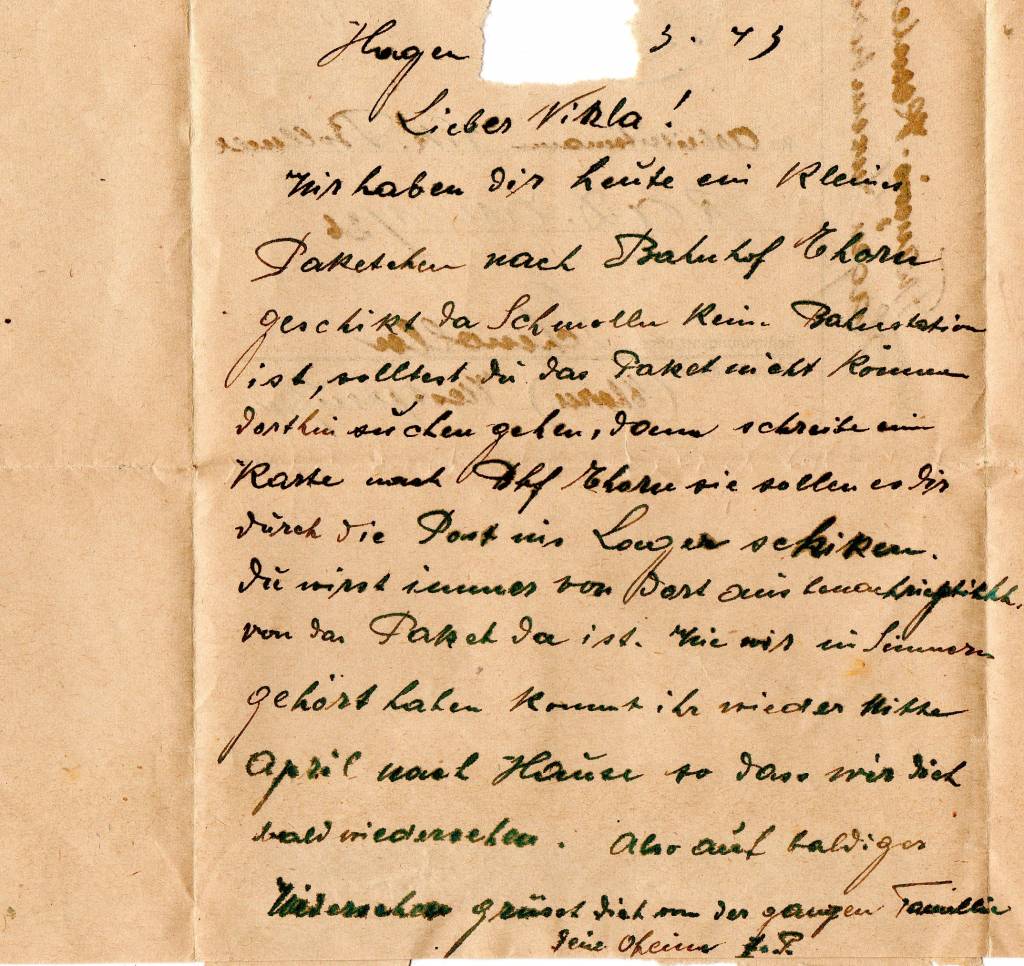 Hagen 3. 43
Lieber Nikla!
Wir haben dir heute ein kleines
Paketchen nach Bahnhof Thorn
geschikt da Schmolln kein Bahnstation
ist, solltest du das Paket nicht können
dorthin suchen gehen, dann schreibe ein
Karte nach Bhf Thorn sie sollen es dir
durch die Post ins Lager schiken.
Du wirst immer von dort aus
von das Paket da ist. Wie wir in Simmern
gehört haben kommt ihr wieder Mitte
April nach Hause so dass wir dich
bald wiedersehen. Also auf baldiges
Widersehen grüsst dich von der ganzen Familie
deine Oheim P.